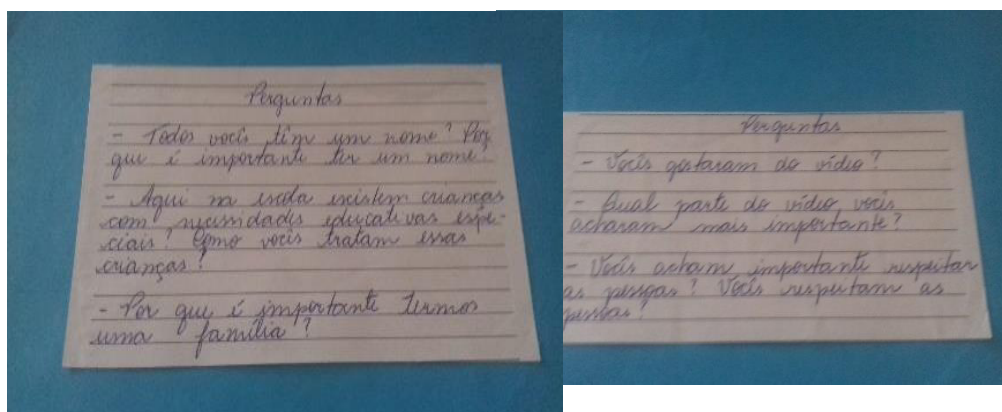 Perguntas
- Todos vocês têm um nome? Por
que é importante ter um nome?
- Aqui na escola existem crianças
com necessidades educativas espe-
ciais? Como vocês tratam essas
crianças?
- Por que é importante termos
uma família?
Perguntas
- Vocês gostaram do vídeo?
- Qual parte do vídeo vocês
acharam mais importante?
- Vocês acham importante respeitar
as pessoas? Vocês respeitam as
pessoas?